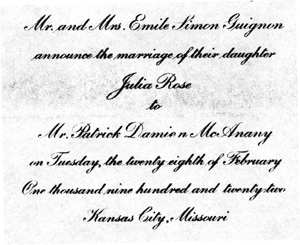 Mr. and Mrs. Emile Simon Guignon
announce the marriage of their daughter
Julia Rose
to
Mr. Patrick Damien McAnany
on Tuesday, the twenty eighth of February
One thousand nine hundred and twenty two
Kansas City, Missouri